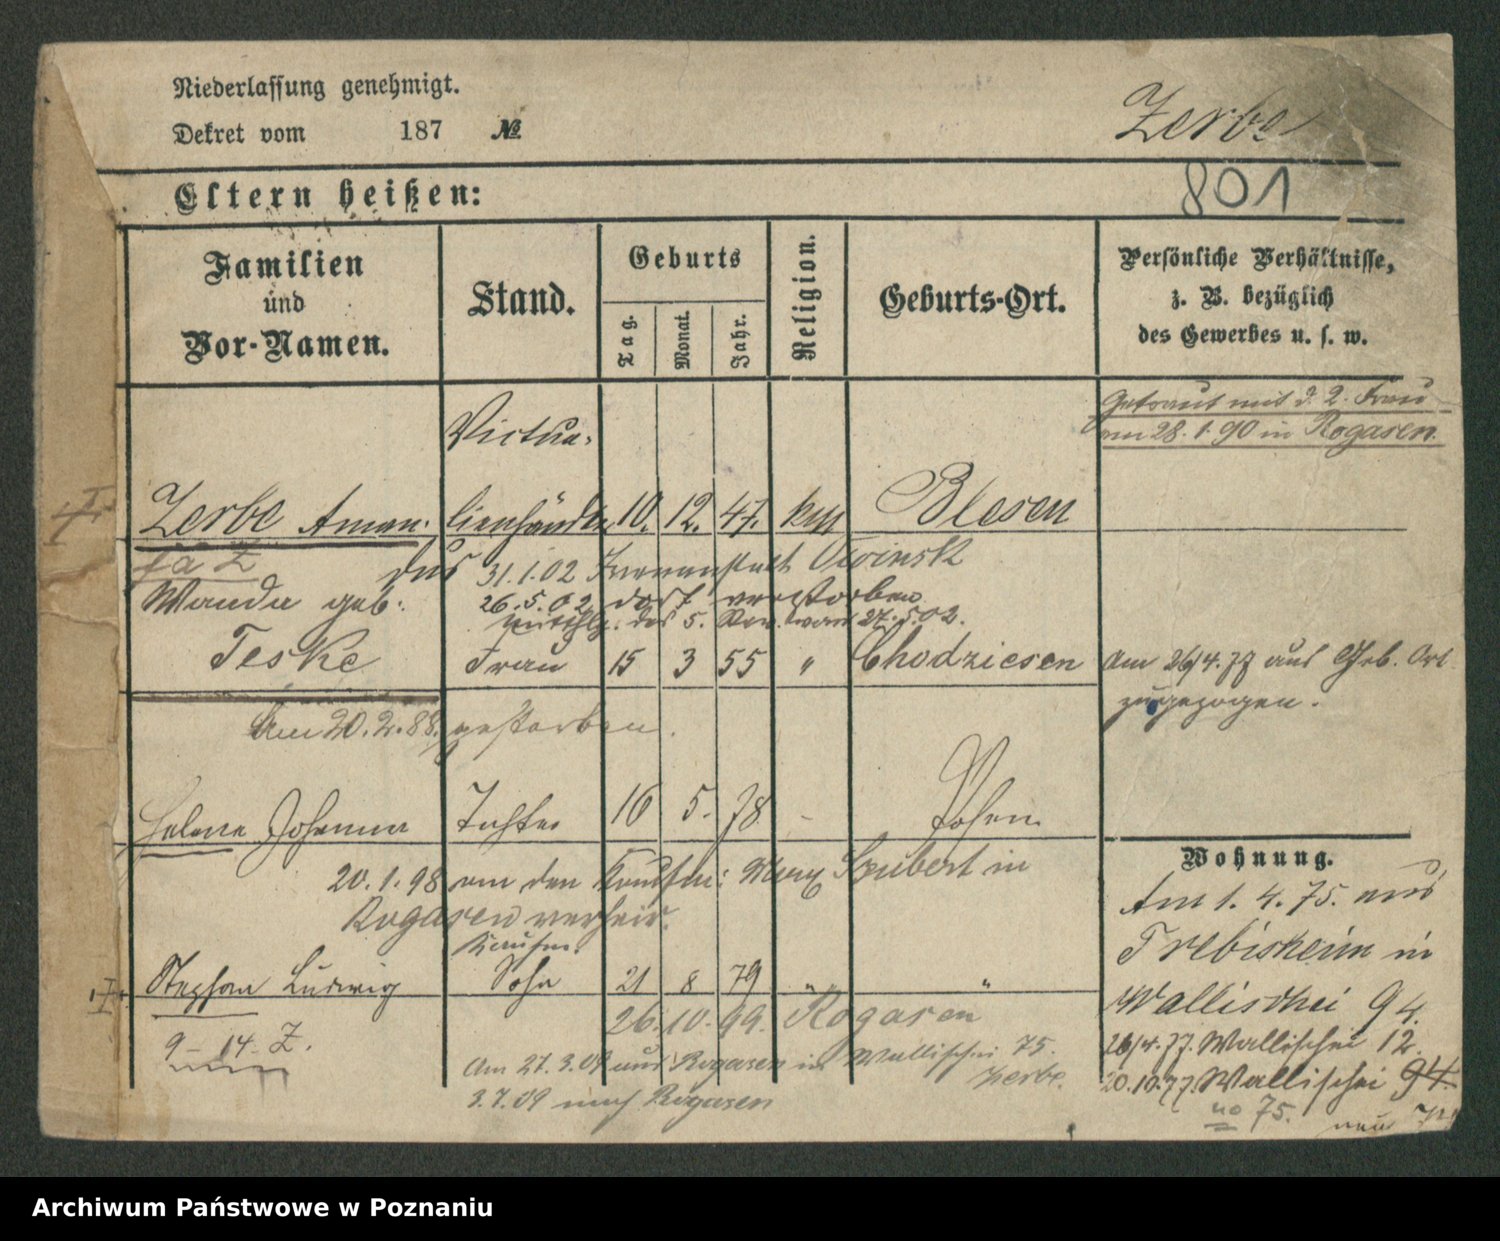 Niederlassung genehmigt.
Dekret vom 187 №
Zerbe
801
Eltern heißen:
Familien
und
Vor-Namen.
Stand.
Geburts
Tag.
Monat.
Jahr.
Religion.
Geburts-Ort.
Persönliche Verhältnisse,
z. B. bezüglich
des Gewerbes u. s. w.
Getraut mit d. 2. Frau
am 28.1.90 in Rogasen.
Victua-
Zerbe Aman- lienhändler 10. 12. 47. Blesen
dus 31.1.02 Irrenanstalt Owinsk
Wanda geb: 26.5.02 dort verstorben
5. 27.5.02.
Teske Frau 15 3 55 " Chodziesen
Am 26/4.77 aus Geb. Ort
zugezogen.
Am 20.2.88. gestorben.
Helene Johanna Tochter 16 5. 78 Posen
20.1.98 an den Kaufm: Szubert in
Rogasen verheir.
Kaufm.
Stephan Ludwig Sohn 21 8 79 " "
26. 10. 99. Rogasen
9 - 14 - Z.
Am 27.3.09 aus Rogasen in Wallischei 75.
Zerbe.
3.7.09 nach Rogasen
Wohnung.
Am 1. 4. 75. aus
in
Wallischei 94.
26/4.77. Wallischei 12.
20.10.77. Wallischei 94.
no 75.
Archiwum Państwowe w Poznaniu